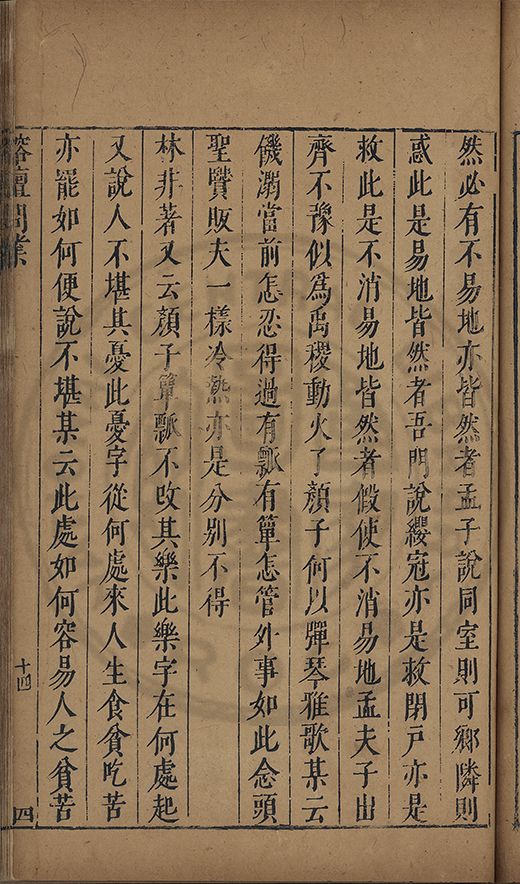 然必有不易地亦皆然者孟子說同室則可鄉隣則
惑此是易地皆然者吾門說纓冠亦是救閉戸亦是
救此是不消易地皆然者假使不消易地孟夫子出
齊不豫似為禹稷動火了顏子何以彈琴雅歌某云
饑溺當前怎忍得過有瓢有簞怎管外事如此念頭
聖賢販夫一樣冷熱亦是分别不得
林非著又云顏子簞瓢不改其樂此樂字在何處起
又說人不堪其憂此憂字從何處來人生食貧吃苦
亦罷如何便說不堪某云此處如何容易人之貧苦
榕壇問業
十四
四